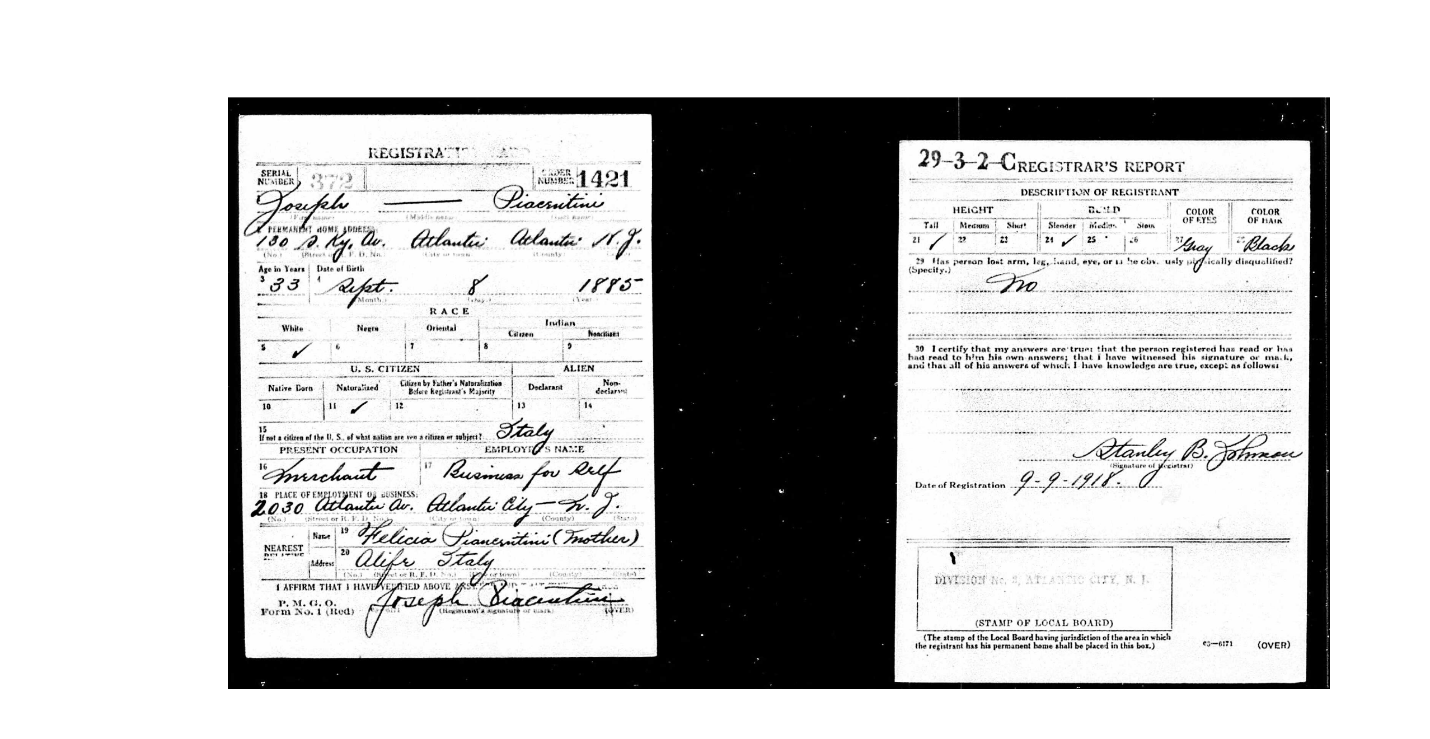 REGISTRATION CARD
SERIAL NUMBER 372 ORDER NUMBER 1421
Joseph — Piacentini
(First name) (Middle name) (Last name)
2 PERMANENT HOME ADDRESS:
130 S. Ky. Av. Atlantic Atlantic N. J.
(No.) (Street or R. F. D. No.) (City or town) (County) (State)
Age in Years Date of Birth
3 33 4 Sept. 8 1885
(Month.) (Day.) (Year.)
RACE
White Negro Oriental Indian
Citizen Noncitizen
5 ✓ 6 7 8 9
U. S. CITIZEN ALIEN
Native Born Naturalized Citizen by Father's Naturalization Before Registrant's Majority Declarant Non-declarant
10 11 ✓ 12 13 14
15
If not a citizen of the U. S., of what nation are you a citizen or subject? Italy
PRESENT OCCUPATION EMPLOYER'S NAME
16 Merchant 17 Business for Self
18 PLACE OF EMPLOYMENT OR BUSINESS:
2030 Atlantic Av. Atlantic City — N. J.
(No.) (Street or R. F. D. No.) (City or town) (County) (State)
NEAREST RELATIVE
Name 19 Felicia Piacentini (Mother)
Address 20 Alife Italy
(No.) (Street or R. F. D. No.) (City or town) (County) (State)
I AFFIRM THAT I HAVE VERIFIED ABOVE
P. M. G. O.
Form No. 1 (Red) Joseph Piacentini
(Registrant's signature or mark) (OVER)
29-3-2-C REGISTRAR'S REPORT
DESCRIPTION OF REGISTRANT
HEIGHT BUILD COLOR OF EYES COLOR OF HAIR
Tall Medium Short Slender Medium Stout
21 ✓ 22 23 24 ✓ 25 26 27 Gray 28 Black
29 Has person lost arm, leg, hand, eye, or is he obviously physically disqualified?
(Specify.)
No
30 I certify that my answers are true; that the person registered has read or has
had read to him his own answers; that I have witnessed his signature or mark,
and that all of his answers of which I have knowledge are true, except as follows:
Stanley B. Johnson
(Signature of Registrar)
Date of Registration 9-9-1918.
DIVISION No. 2, ATLANTIC CITY, N. J.
(STAMP OF LOCAL BOARD)
(The stamp of the Local Board having jurisdiction of the area in which
the registrant has his permanent home shall be placed in this box.)
03—6171 (OVER)